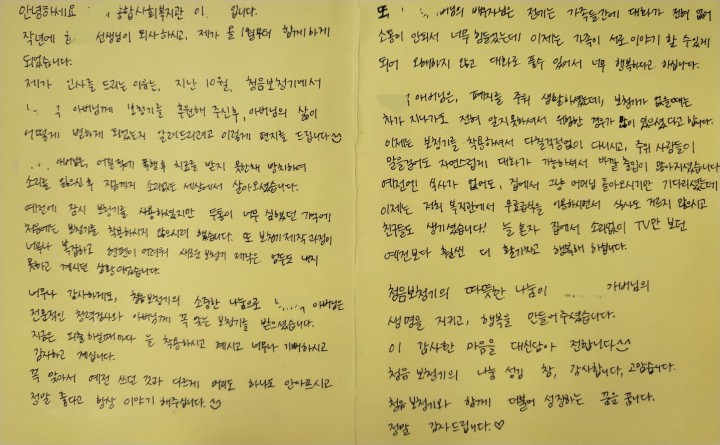 안녕하세요 합사회복지관 이 입니다.
작년에 선생님이 퇴사하시고, 제가 올 1월부터 함께하게
되었습니다.
제가 인사를 드리는 이유는, 지난 10월, 청음보청기에서
아버님께 보청기를 후원해 주신후, 아버님의 삶이
어떻게 변하게 되었는지 알려드리려고 이렇게 편지를 드립니다
아버님은, 어릴적에 폭행후 치료를 받지 못한채 방치하여
소리를 잃으신후 지금까지 소리없는 세상에서 살아오셨습니다.
예전에 잠시 보청기를 사용하셨지만 두통이 너무 심했던 기억에
처음에는 보청기를 착용하시지 않으시려 했습니다. 또 보청기 제작 과정이
너무나 복잡하고 형편이 어려워 새로운 보청기 제작은 엄두도 내지
못하고 계시던 상황이었습니다.
너무나 감사하게도, 청음보청기의 소중한 나눔으로 아버님은
전문적인 청력검사와 아버님께 꼭 맞는 보청기를 받으셨습니다.
지금은 외출하실때마다 늘 착용하시고 계시고 너무나 기뻐하시고
감사하고 계십니다.
꼭 맞아서 예전 쓰던 것과 다르게 머리도 하나도 안아프시고
정말 좋다고 항상 이야기 해주십니다.
또 버님의 배우자님은 전기는 가족들간에 대화가 전혀 없어
소통이 안되서 너무 힘들었는데 이제는 가족이 서로 이야기 할 수 있게
되어 오해하지 않고 대화로 풀수 있어서 너무 행복하다고 하십니다.
아버님은, 폐지를 주워 생활하셨는데, 보청기가 없을때는
차가 지나가도 전혀 알지못하셔서 위험한 경우가 많이 있으셨다고 합니다.
이제는 보청기를 착용하셔서 다칠걱정없이 다니시고, 주위 사람들이
말을걸어도 자연스럽게 대화가 가능하셔서 바깥 출입이 많아지셨습니다
예전엔 식사가 없어도, 집에서 그냥 어머님 돌아오시기만 기다리셨는데
이제는 저희 복지관에서 무료급식을 이용하시면서 식사도 거르지 않으시고
친구들도 생기셨습니다! 늘 혼자 집에서 소리없이 TV만 보던
예전보다 훨씬 더 활기차고 행복해 하십니다.
청음보청기의 따뜻한 나눔이 아버님의
생명을 지키고, 행복을 만들어주셨습니다.
이 감사한 마음을 대신담아 전합니다
청음 보청기의 나눔 정말, 감사합니다, 고맙습니다.
청음 보청기와 함께 더불어 성장하는 꿈을 꿉니다.
정말 감사드립니다.♡